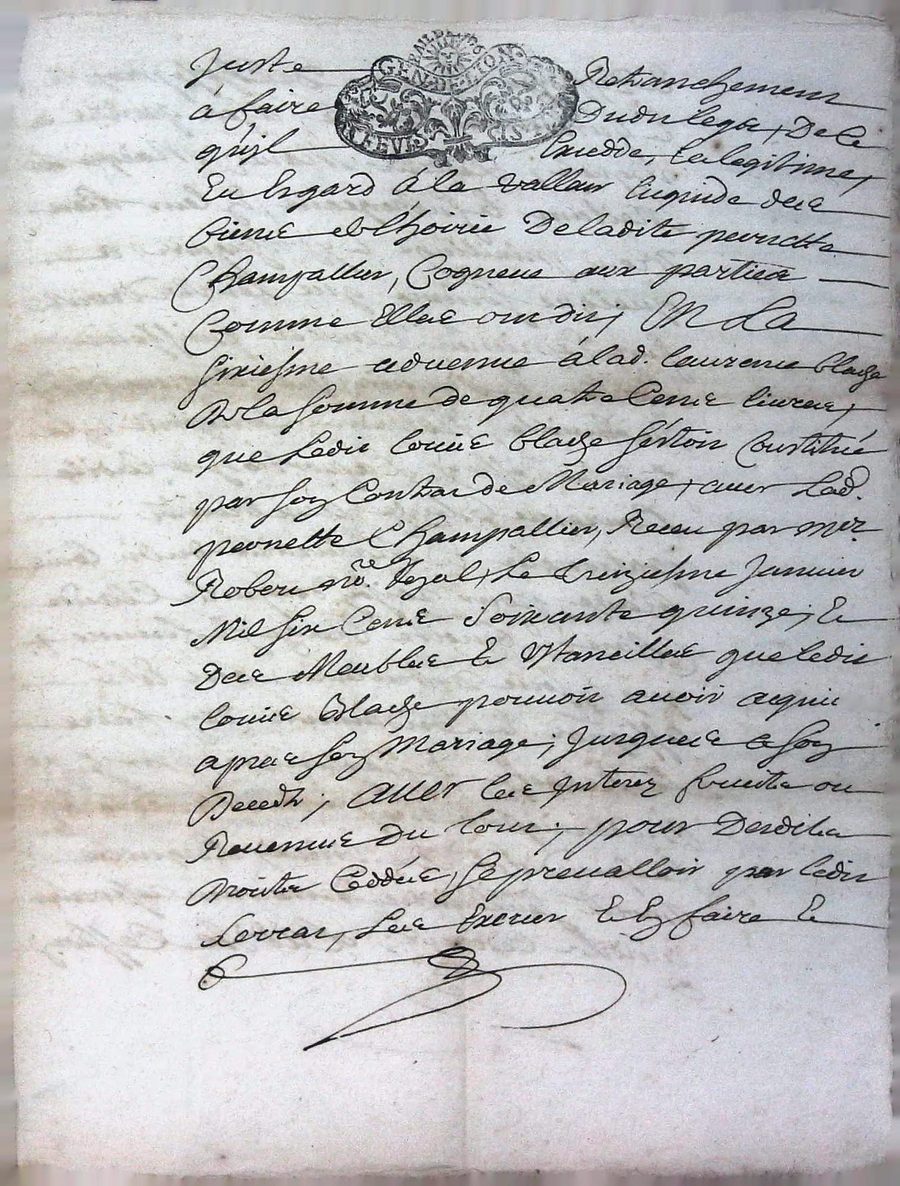 Juste Retranchement
à faire Dudit legat, De ce
qu'il Excedde, la legitime,
Eu Esgard à la valleur liquide des
biens et hoirie De ladite pernette
Champallier, Cogneue aux parties
Comme Elles ont dit, En La
sixiesme advenue à lad. laurence blache
De la somme de quatre Cens livres,
que Ledit louis blache s'estoit Constitué
par son Contrat de Mariage, avec Lad.
pernette Champallier, Receu par me
Robert nore. Royal, Le treiziesme Janvier
Mil six Cens Soixante quinze, Et
Des Meubles Et Ustancilles que ledit
louis Blache pouvoit avoir aquis
apres son Mariage, Jusques a son
Decedz, avec les Interez fruits ou
Revenus Du tout, pour Desdits
droits Ceddés, se prevalloir par ledit
, Les Exercer Et En faire Et
GEN DE LYON